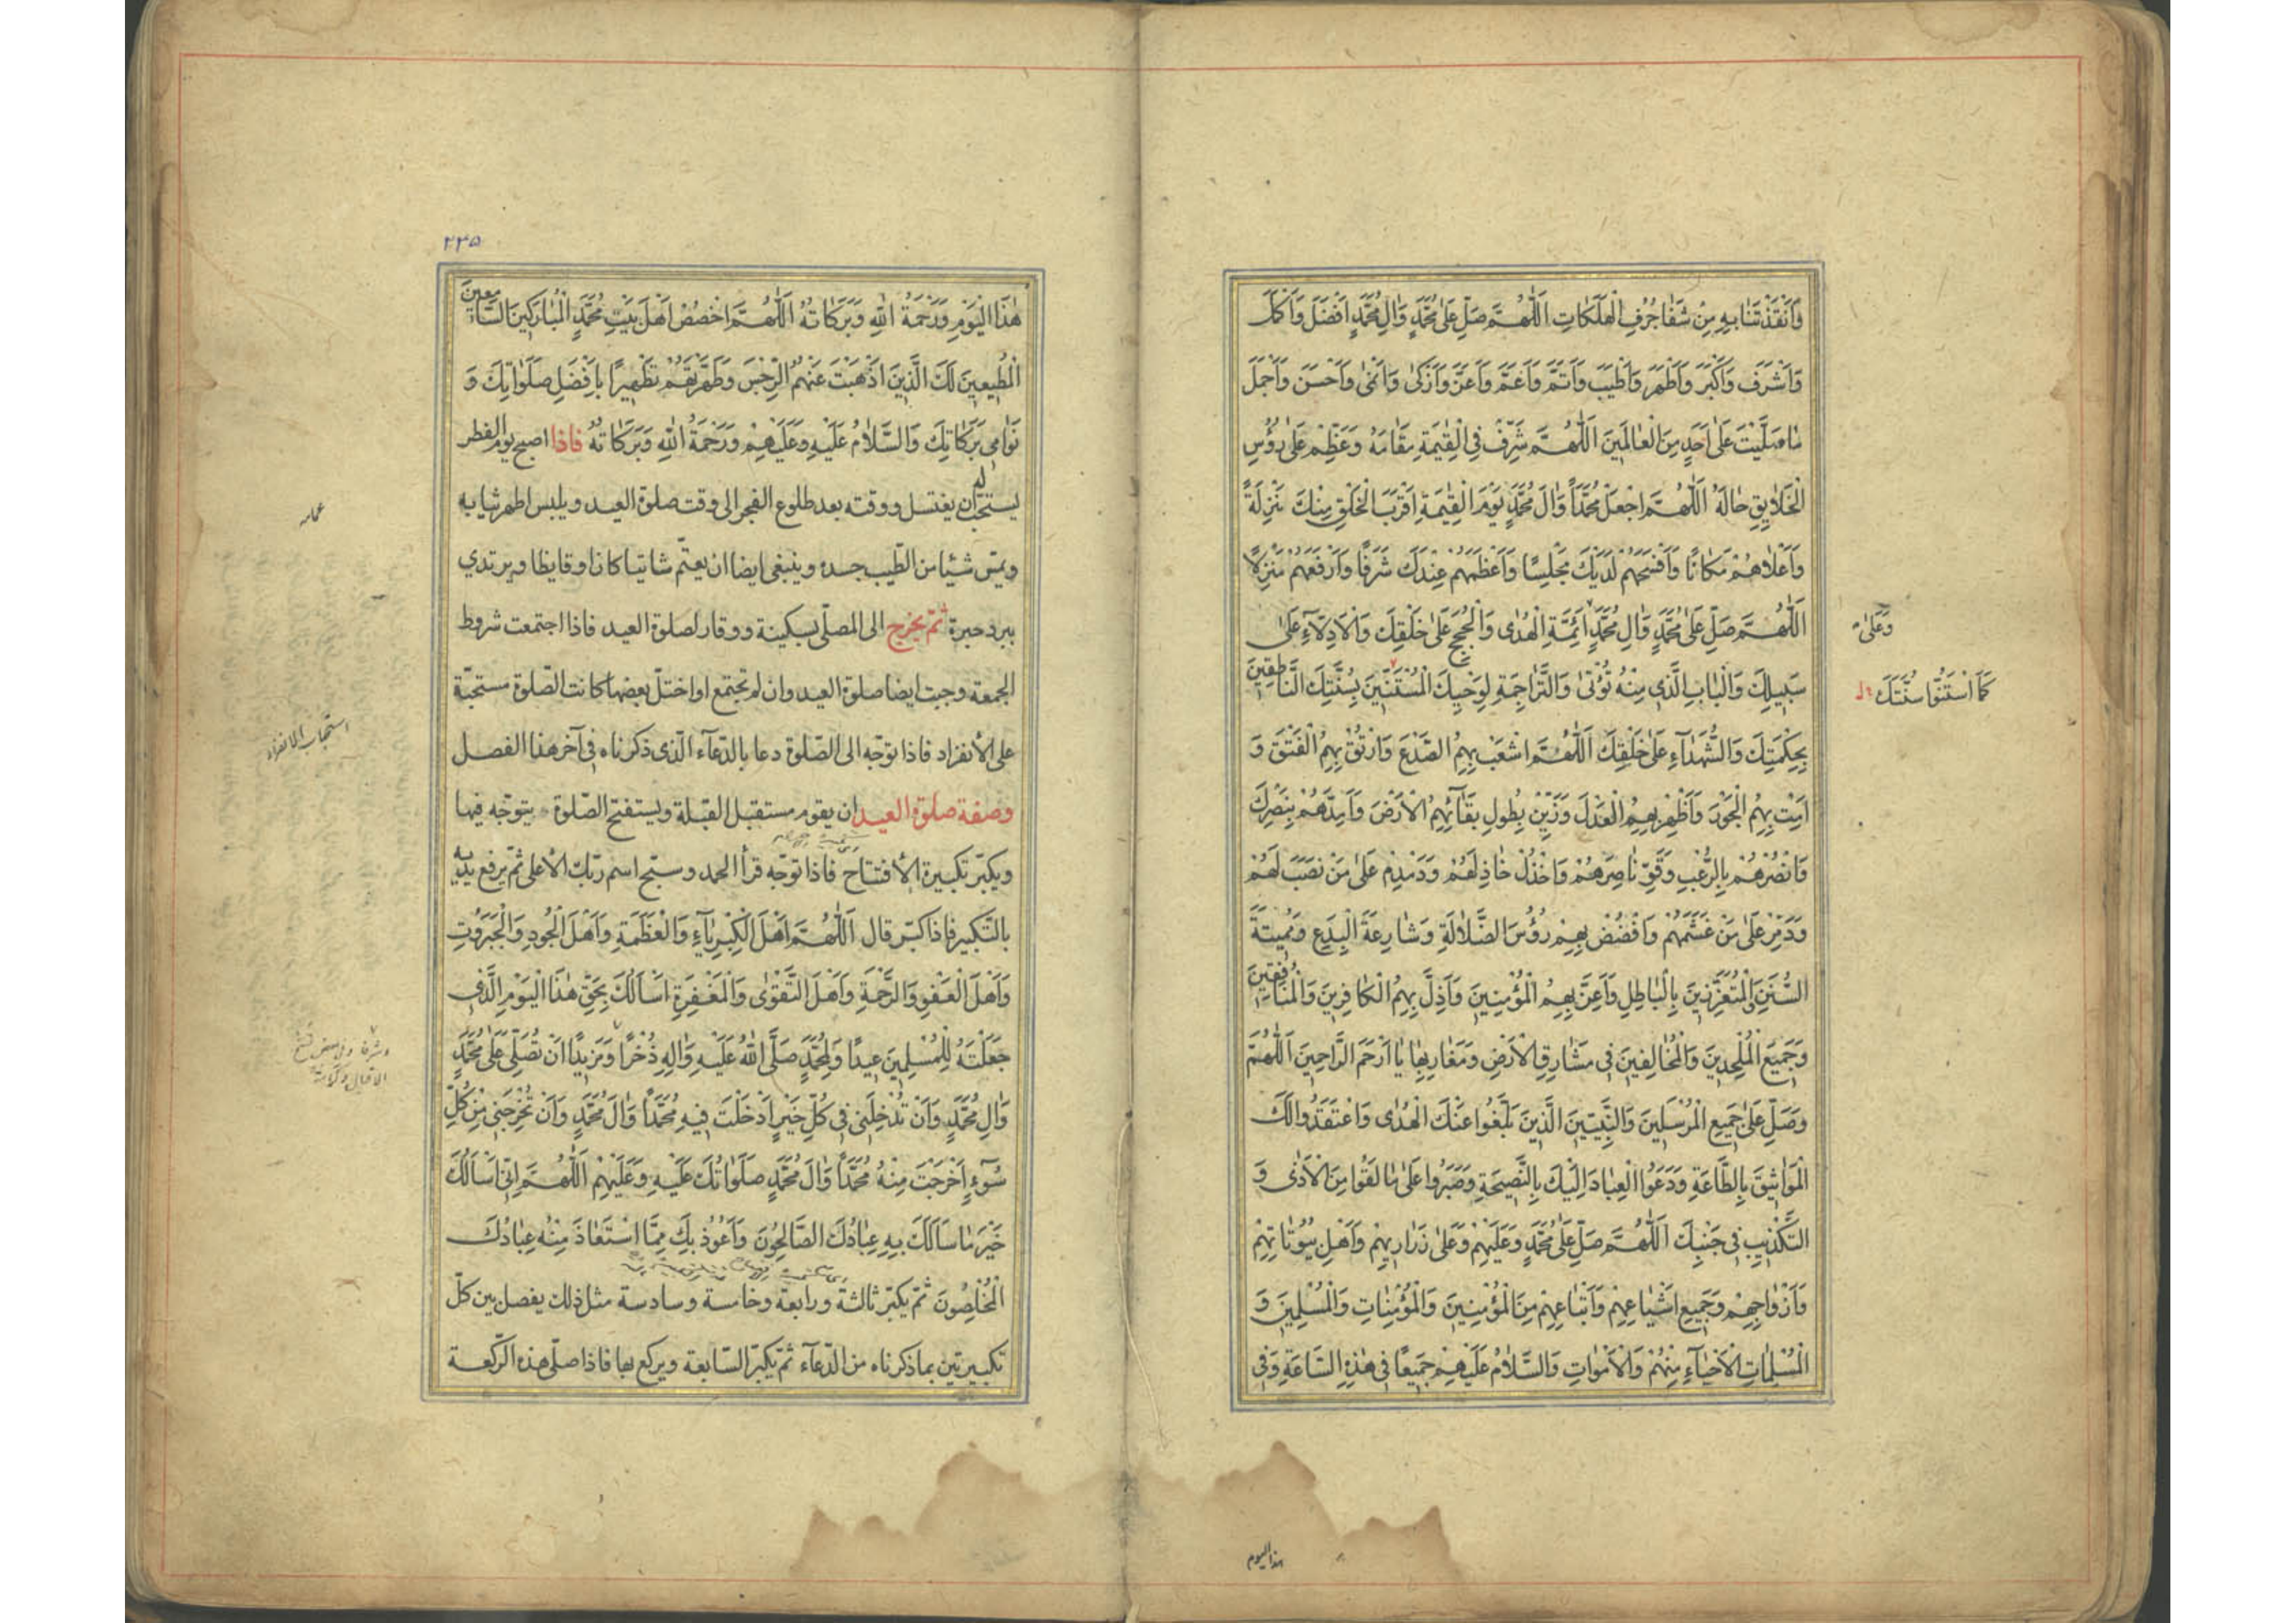 وَاَنْقَذْتَنا بِهِ مِنْ شَفا جُرُفِ الْهَلَكاتِ اَللّٰهُمَّ صَلِّ عَلىٰ مُحَمَّدٍ وَاٰلِ مُحَمَّدٍ اَفْضَلَ وَاَكْمَلَ
وَاَشْرَفَ وَاَكْبَرَ وَاَطْهَرَ وَاَطْيَبَ وَاَتَمَّ وَاَعَمَّ وَاَعَزَّ وَاَزْكىٰ وَاَنْمىٰ وَاَحْسَنَ وَاَجْمَلَ
ما صَلَّيْتَ عَلىٰ اَحَدٍ مِنَ الْعالَمينَ اَللّٰهُمَّ شَرِّفْ فِي الْقِيٰمَةِ مَقامَهُ وَعَظِّمْ عَلىٰ رُؤُسِ
الْخَلايِقِ حالَهُ اَللّٰهُمَّ اجْعَلْ مُحَمَّدًا وَاٰلَ مُحَمَّدٍ يَوْمَ الْقِيٰمَةِ اَقْرَبَ الْخَلْقِ مِنْكَ مَنْزِلَةً
وَاَعْلاهُمْ مَكانًا وَاَفْسَحَهُمْ لَدَيْكَ مَجْلِسًا وَاَعْظَمَهُمْ عِنْدَكَ شَرَفًا وَاَرْفَعَهُمْ مَنْزِلًا
اَللّٰهُمَّ صَلِّ عَلىٰ مُحَمَّدٍ وَاٰلِ مُحَمَّدٍ اَئِمَّةِ الْهُدىٰ وَالْحُجَجِ عَلىٰ خَلْقِكَ وَالْاَدِلّاءِ عَلىٰ
وَعَلىٰ
سَبيلِكَ وَالْبابِ الَّذي مِنْهُ تُؤْتىٰ وَالتَّراجِمَةِ لِوَحْيِكَ الْمُسْتَنّينَ بِسُنَّتِكَ النّاطِقينَ
كَمَا اسْتَنُّوا سُنَّتَكَ
بِحِكْمَتِكَ وَالشُّهَداءِ عَلىٰ خَلْقِكَ اَللّٰهُمَّ اشْعَبْ بِهِمُ الصَّدْعَ وَارْتُقْ بِهِمُ الْفَتْقَ وَ
اَمِتْ بِهِمُ الْجَوْرَ وَاَظْهِرْ بِهِمُ الْعَدْلَ وَزَيِّنْ بِطُولِ بَقائِهِمُ الْاَرْضَ وَاَيِّدْهُمْ بِنَصْرِكَ
وَانْصُرْهُمْ بِالرُّعْبِ وَقَوِّ ناصِرَهُمْ وَاخْذُلْ خاذِلَهُمْ وَدَمْدِمْ عَلىٰ مَنْ نَصَبَ لَهُمْ
وَدَمِّرْ عَلىٰ مَنْ غَشَمَهُمْ وَافْضُضْ بِهِمْ رُؤُسَ الضَّلالَةِ وَشارِعَةَ الْبِدَعِ وَمُميتَةَ
السُّنَنِ وَالْمُتَعَزِّزينَ بِالْباطِلِ وَاَعِزَّ بِهِمُ الْمُؤْمِنينَ وَاَذِلَّ بِهِمُ الْكافِرينَ وَالْمُنافِقينَ
وَجَميعَ الْمُلْحِدينَ وَالْمُخالِفينَ في مَشارِقِ الْاَرْضِ وَمَغارِبِها يا اَرْحَمَ الرّاحِمينَ اَللّٰهُمَّ
وَصَلِّ عَلىٰ جَميعِ الْمُرْسَلينَ وَالنَّبِيّينَ الَّذينَ بَلَّغُوا عَنْكَ الْهُدىٰ وَاعْتَقَدُوا لَكَ
الْمَواثيقَ بِالطّاعَةِ وَدَعَوُا الْعِبادَ اِلَيْكَ بِالنَّصيحَةِ وَصَبَرُوا عَلىٰ ما لَقُوا مِنَ الْاَذىٰ وَ
التَّكْذيبِ في جَنْبِكَ اَللّٰهُمَّ صَلِّ عَلىٰ مُحَمَّدٍ وَعَلَيْهِمْ وَعَلىٰ ذَراريهِمْ وَاَهْلِ بُيُوتاتِهِمْ
وَاَزْواجِهِمْ وَجَميعِ اَشْياعِهِمْ وَاَتْباعِهِمْ مِنَ الْمُؤْمِنينَ وَالْمُؤْمِناتِ وَالْمُسْلِمينَ وَ
الْمُسْلِماتِ الْاَحْياءِ مِنْهُمْ وَالْاَمْواتِ وَالسَّلامُ عَلَيْهِمْ جَميعًا في هٰذِهِ السّاعَةِ وَفي
هذا اليوم
٢٢٥
هٰذَا الْيَوْمِ وَرَحْمَةُ اللهِ وَبَرَكاتُهُ اَللّٰهُمَّ اخْصُصْ اَهْلَ بَيْتِ مُحَمَّدٍ الْمُبارَكينَ السّامِعينَ
الْمُطيعينَ لَكَ الَّذينَ اَذْهَبْتَ عَنْهُمُ الرِّجْسَ وَطَهَّرْتَهُمْ تَطْهيرًا بِاَفْضَلِ صَلَواتِكَ وَ
نَوامي بَرَكاتِكَ وَالسَّلامُ عَلَيْهِ وَعَلَيْهِمْ وَرَحْمَةُ اللهِ وَبَرَكاتُهُ فاذا اصبح يوم الفطر
يستحبّ له ان يغتسل ووقته بعد طلوع الفجر الى وقت صلوة العيد ويلبس اطهر ثيابه
ويمسّ شيئا من الطّيب جسده وينبغي ايضا ان يعتمّ شاتيا كان او قايظا ويرتدي
ببرد حبرة ثمّ يخرج الى المصلّى بسكينة ووقار لصلوة العيد فاذا اجتمعت شروط
الجمعة وجبت ايضا صلوة العيد وان لم تجتمع او اختلّ بعضها كانت الصّلوة مستحبّة
استحباب الانفراد
على الأنفراد فاذا توجّه الى الصّلوة دعا بالدّعآء الّذى ذكرناه فى آخر هذا الفصل
وصفة صلوة العيد ان يقوم مستقبل القبلة ويستفتح الصّلوة يتوجّه فيها
ويكبّر تكبيرة الأفتتاح فاذا توجّه قرأ الحمد وسبّح اسم ربّك الأعلى ثمّ يرفع يديه
بالتّكبير فاذا كبّر قال اَللّٰهُمَّ اَهْلَ الْكِبْرِياءِ وَالْعَظَمَةِ وَاَهْلَ الْجُودِ وَالْجَبَرُوتِ
وَاَهْلَ الْعَفْوِ وَالرَّحْمَةِ وَاَهْلَ التَّقْوىٰ وَالْمَغْفِرَةِ اَسْاَلُكَ بِحَقِّ هٰذَا الْيَوْمِ الَّذي
جَعَلْتَهُ لِلْمُسْلِمينَ عيدًا وَلِمُحَمَّدٍ صَلَّى اللهُ عَلَيْهِ وَاٰلِهِ ذُخْرًا وَمَزيدًا اَنْ تُصَلِّيَ عَلىٰ مُحَمَّدٍ
وَاٰلِ مُحَمَّدٍ وَاَنْ تُدْخِلَني في كُلِّ خَيْرٍ اَدْخَلْتَ فيهِ مُحَمَّدًا وَاٰلَ مُحَمَّدٍ وَاَنْ تُخْرِجَني مِنْ كُلِّ
سُوءٍ اَخْرَجْتَ مِنْهُ مُحَمَّدًا وَاٰلَ مُحَمَّدٍ صَلَواتُكَ عَلَيْهِ وَعَلَيْهِمْ اَللّٰهُمَّ اِنّي اَسْاَلُكَ
خَيْرَ ما سَاَلَكَ بِهِ عِبادُكَ الصّالِحُونَ وَاَعُوذُ بِكَ مِمَّا اسْتَعاذَ مِنْهُ عِبادُكَ
الْمُخْلِصُونَ ثمّ يكبّر ثالثة ورابعة وخامسة وسادسة مثل ذلك يفصل بين كلّ
تكبيرتين بما ذكرناه من الدّعآء ثمّ يكبّر السّابعة ويركع بها فاذا صلّى هذه الرّكعة